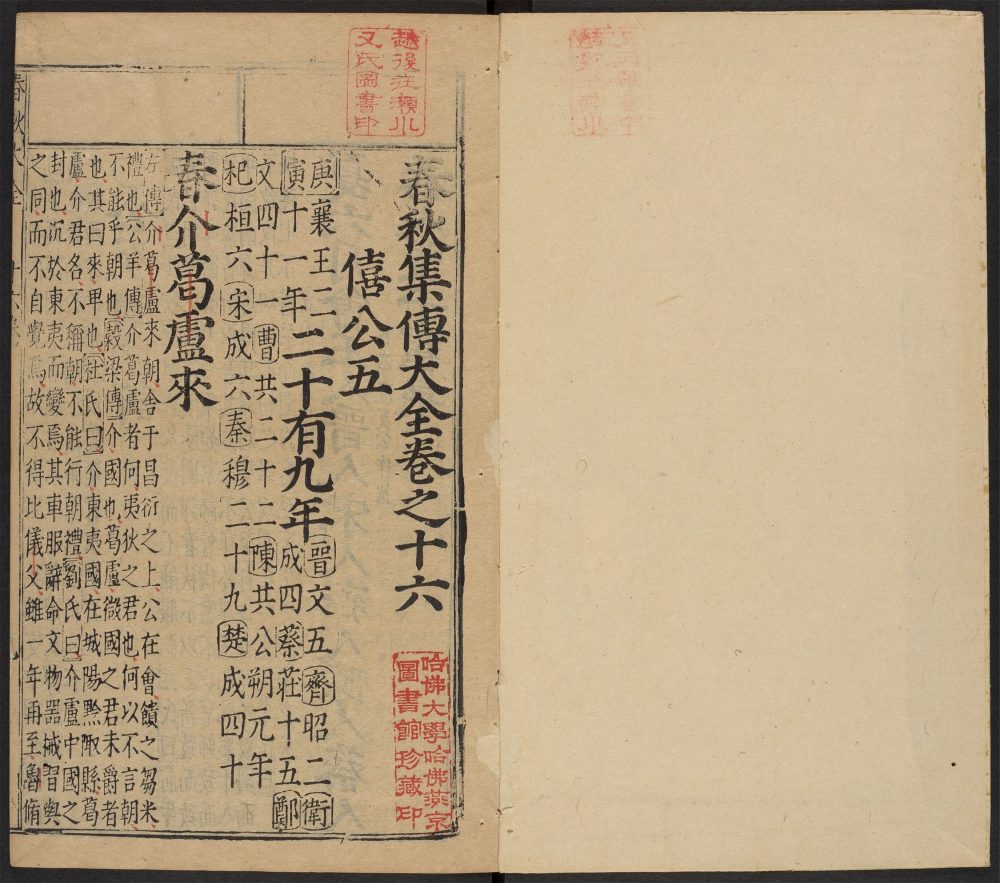 越後在瀬水
又氏圖書印
春秋集傳大全卷之十六
哈佛大學哈佛燕京
圖書館珍藏印
僖公五
庚寅襄王二十一年二十有九年晉文五齊昭二衛成四蔡莊十五鄭
文四十一曹共二十二陳共公朔元年
杞桓六宋成六秦穆二十九楚成四十
春介葛盧來
左傳介葛盧來朝舍于昌衍之上公在會饋之芻米
禮也公羊傳介葛盧者何夷狄之君也何以不言朝
不能乎朝也穀梁傳介國也葛盧微國之君未爵者
也其曰來卑也杜氏曰介東夷國在城陽黔陬縣葛
盧介君名不稱朝不能行朝禮劉氏曰介盧中國之
封也沉於東夷而變焉其車服辭命文物器械習與
之同而不自覺焉故不得比儀父雖一年再至魯脩
春秋大全 十六卷